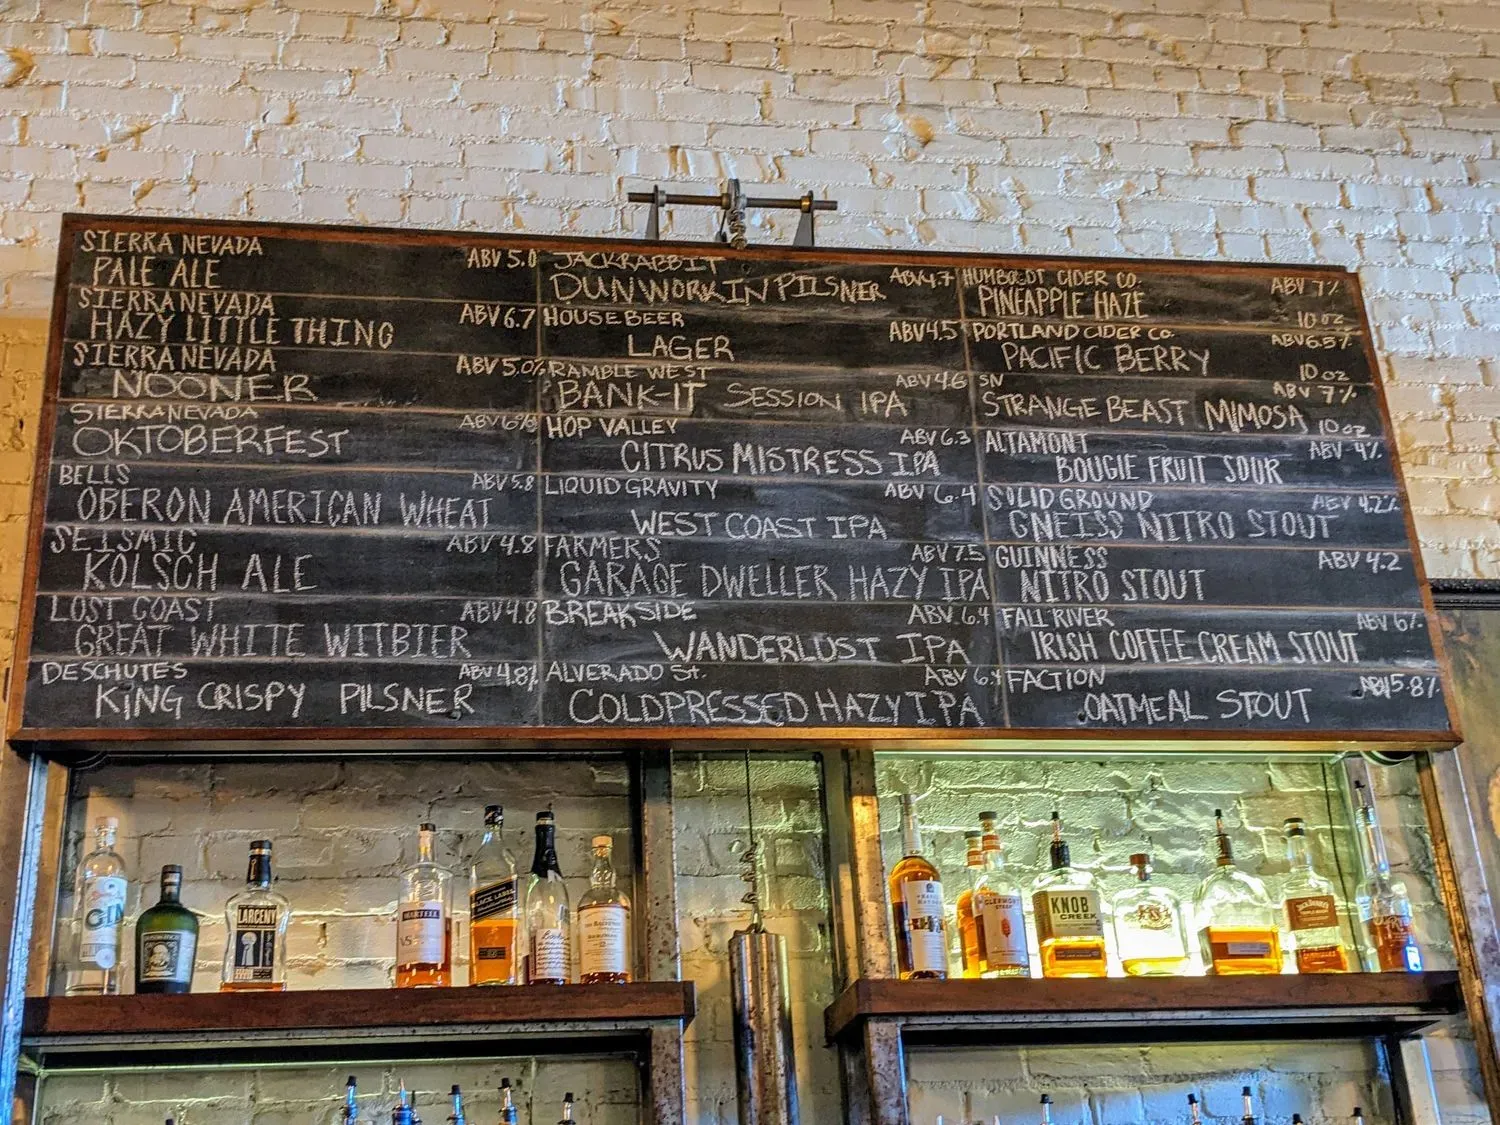 SIERRA NEVADA
PALE ALE ABV 5.0
SIERRA NEVADA
HAZY LITTLE THING ABV 6.7
SIERRA NEVADA
NOONER ABV 5.0%
SIERRA NEVADA
OKTOBERFEST ABV 6%
BELLS
OBERON AMERICAN WHEAT ABV 5.8
SEISMIC
KOLSCH ALE ABV 4.8
LOST COAST
GREAT WHITE WITBIER ABV 4.8
DESCHUTES
KING CRISPY PILSNER ABV 4.8%
JACKRABBIT
DUNWORKIN PILSNER ABV 4.7
HOUSE BEER
LAGER ABV 4.5
RAMBLE WEST
BANK-IT SESSION IPA ABV 4.6
HOP VALLEY
CITRUS MISTRESS IPA ABV 6.3
LIQUID GRAVITY
WEST COAST IPA ABV 6.4
FARMERS
GARAGE DWELLER HAZY IPA ABV 7.5
BREAKSIDE
WANDERLUST IPA ABV 6.4
ALVERADO St.
COLDPRESSED HAZY IPA ABV 6.4
HUMBOLDT CIDER CO. ABV 7%
PINEAPPLE HAZE 10 oz
PORTLAND CIDER Co. ABV 6.5%
PACIFIC BERRY 10 oz
SN ABV 7%
STRANGE BEAST MIMOSA 10 oz
ALTAMONT ABV 4%
BOUGIE FRUIT SOUR
SOLID GROUND ABV 4.2%
GNEISS NITRO STOUT
GUINNESS ABV 4.2
NITRO STOUT
FALL RIVER ABV 6%
IRISH COFFEE CREAM STOUT
FACTION ABV 5.8%
OATMEAL STOUT
GIN
LARCENY
MARTELL
VS
BLACK LABEL
KNOB
CREEK